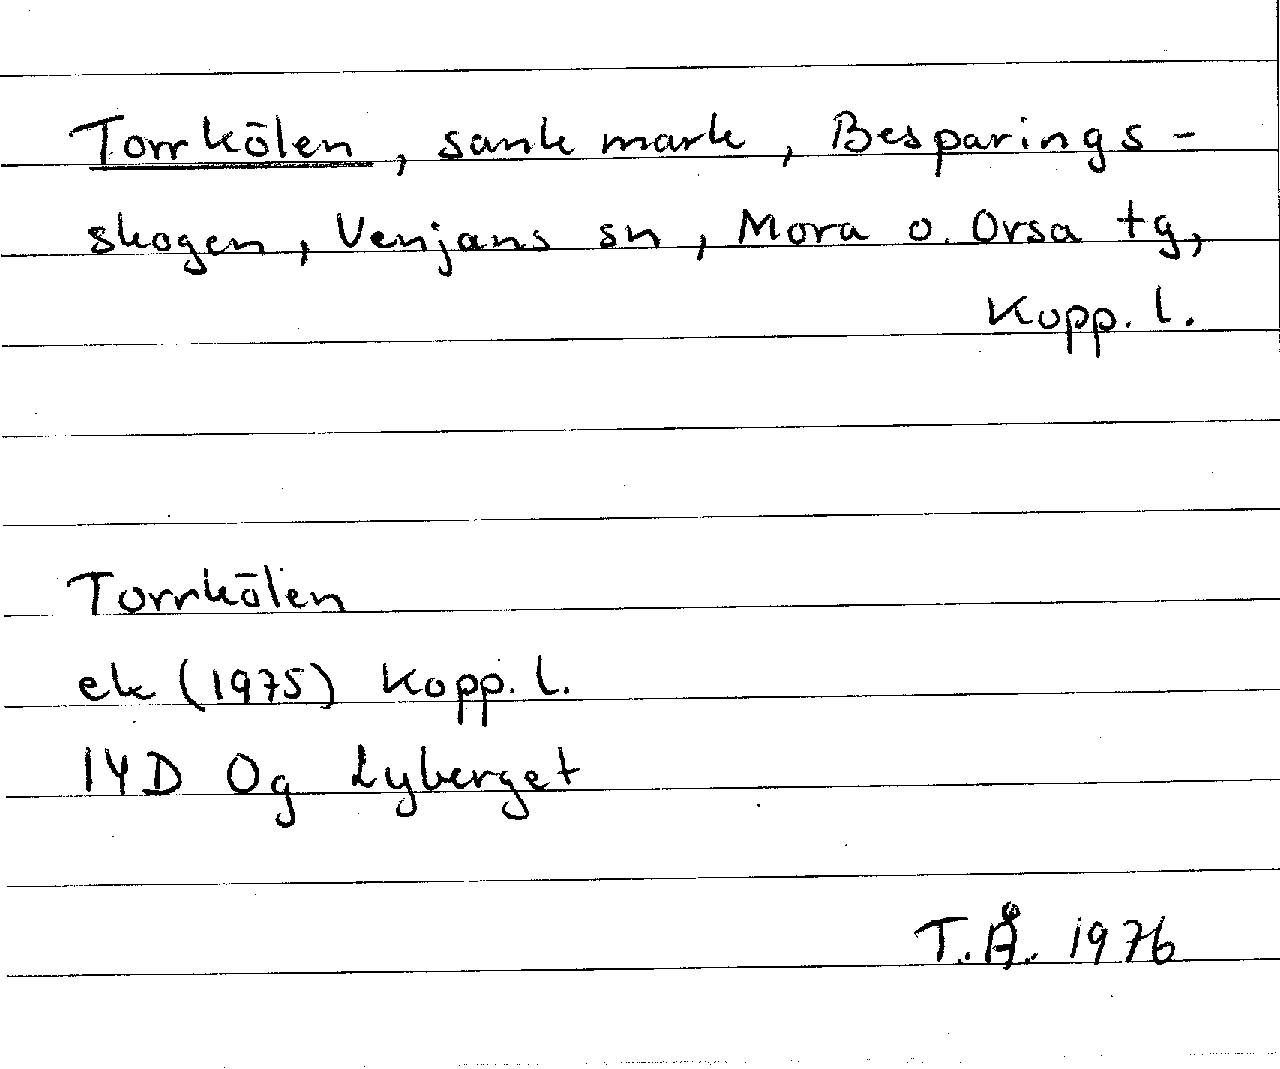 Torrkölen, sank mark, Besparings-
skogen, Venjans sn, Mora o. Orsa tg,
Kopp. l.
Torrkölen
ek (1975) Kopp. l.
14D Og Lyberget
T.Å. 1976